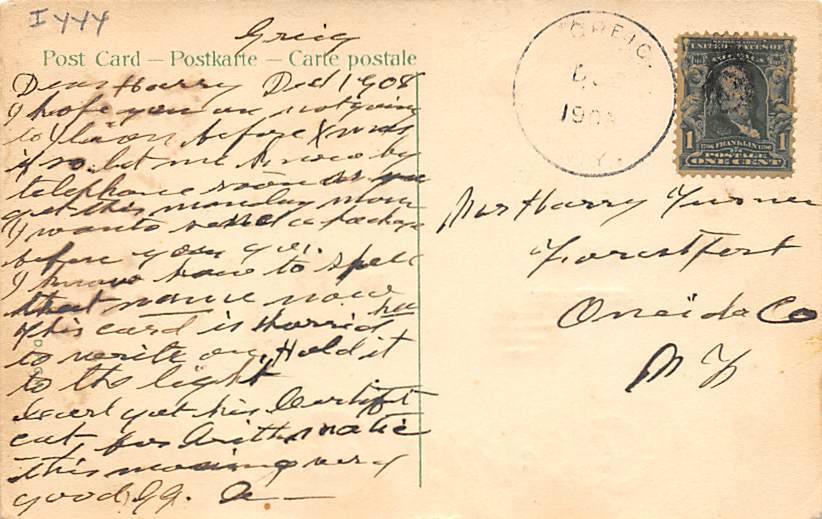 I444
Greig
Post Card — Postkarte — Carte postale
Dear Harry Dec 1 1908
I hope you are not going
to Ilion before Xmas
if so let me know by
telephone soon as you
get this monday morn
I want to send a package
before you go.
I know how to spell
that name now
This card is Horrid
to write on, Hold it
to the light
Earl got his Certifi
cat for Arithmatic
this morning very
good, 99.
GREIG
1908
N.Y.
UNITED STATES OF AMERICA
1 1
1706 FRANKLIN 1790
POSTAGE
ONE CENT
Mrs Harry Turner
Forestport
Oneida Co
N Y